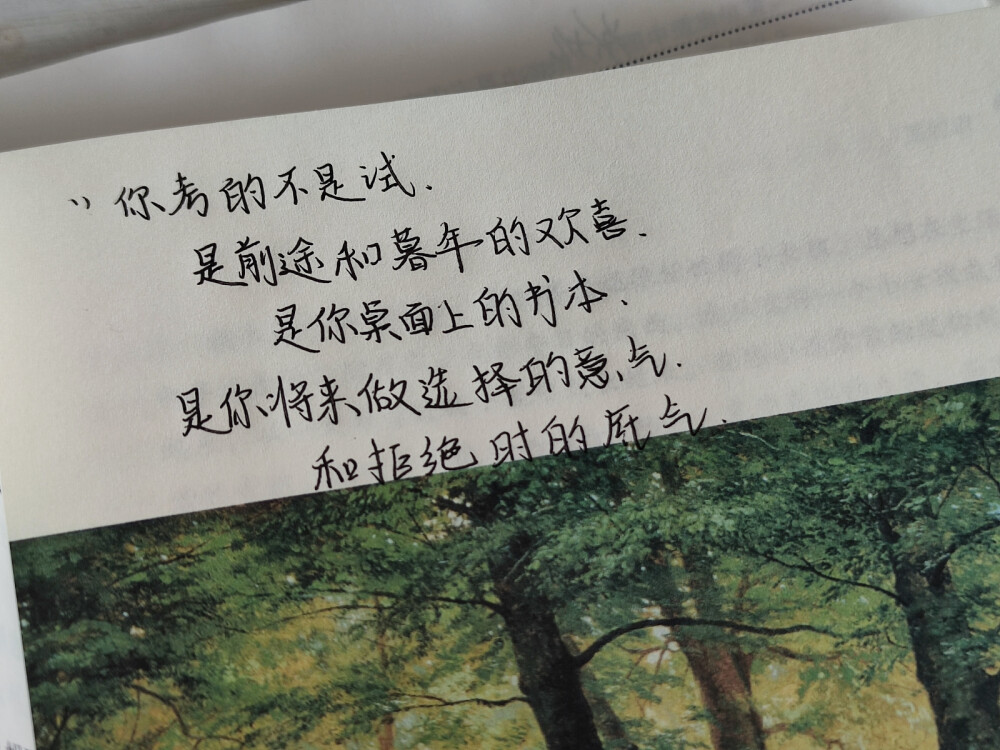 “你考的不是试.
是前途和暮年的欢喜.
是你桌面上的书本.
是你将来做选择的意气.
和拒绝时的底气.